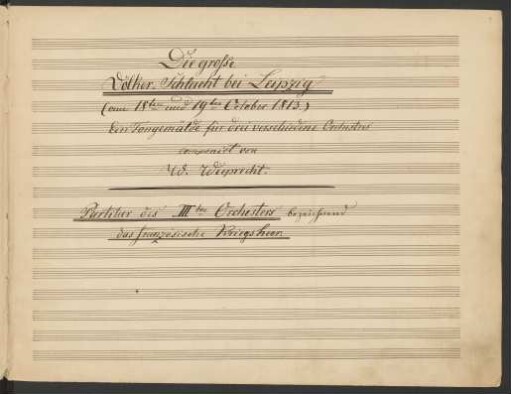 Die große
Völker-Schlacht bei Leipzig
(am 18ten und 19ten October 1813.)
Ein Tongemälde für drei verschiedene Orchester
componirt von
W. Wieprecht.
Partitur des IIIten Orchesters bezeichnend
das französische Kriegsheer.